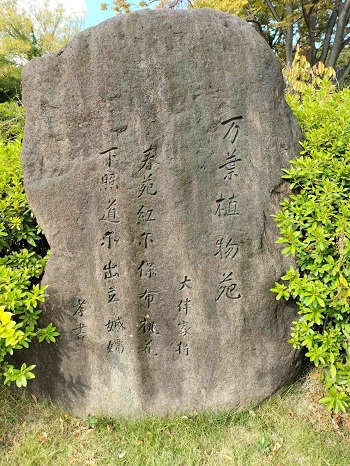 万葉植物苑
大伴家持
春苑紅尓保布桃花
下照道尓出立嬬嬬
孝書